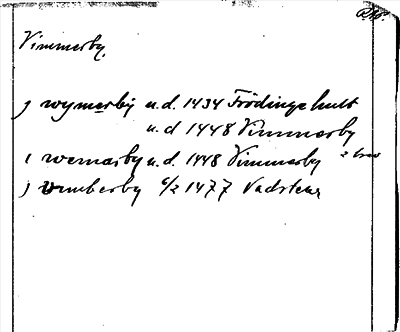 RAp.
Vimmerby.
j wymerbij u.d. 1434 Frödingehult
u.d 1448 Vimmerby
i wemarby u.d. 1448 Vimmerby 2 brev
j vimberby 6/2 1477 Vadstena